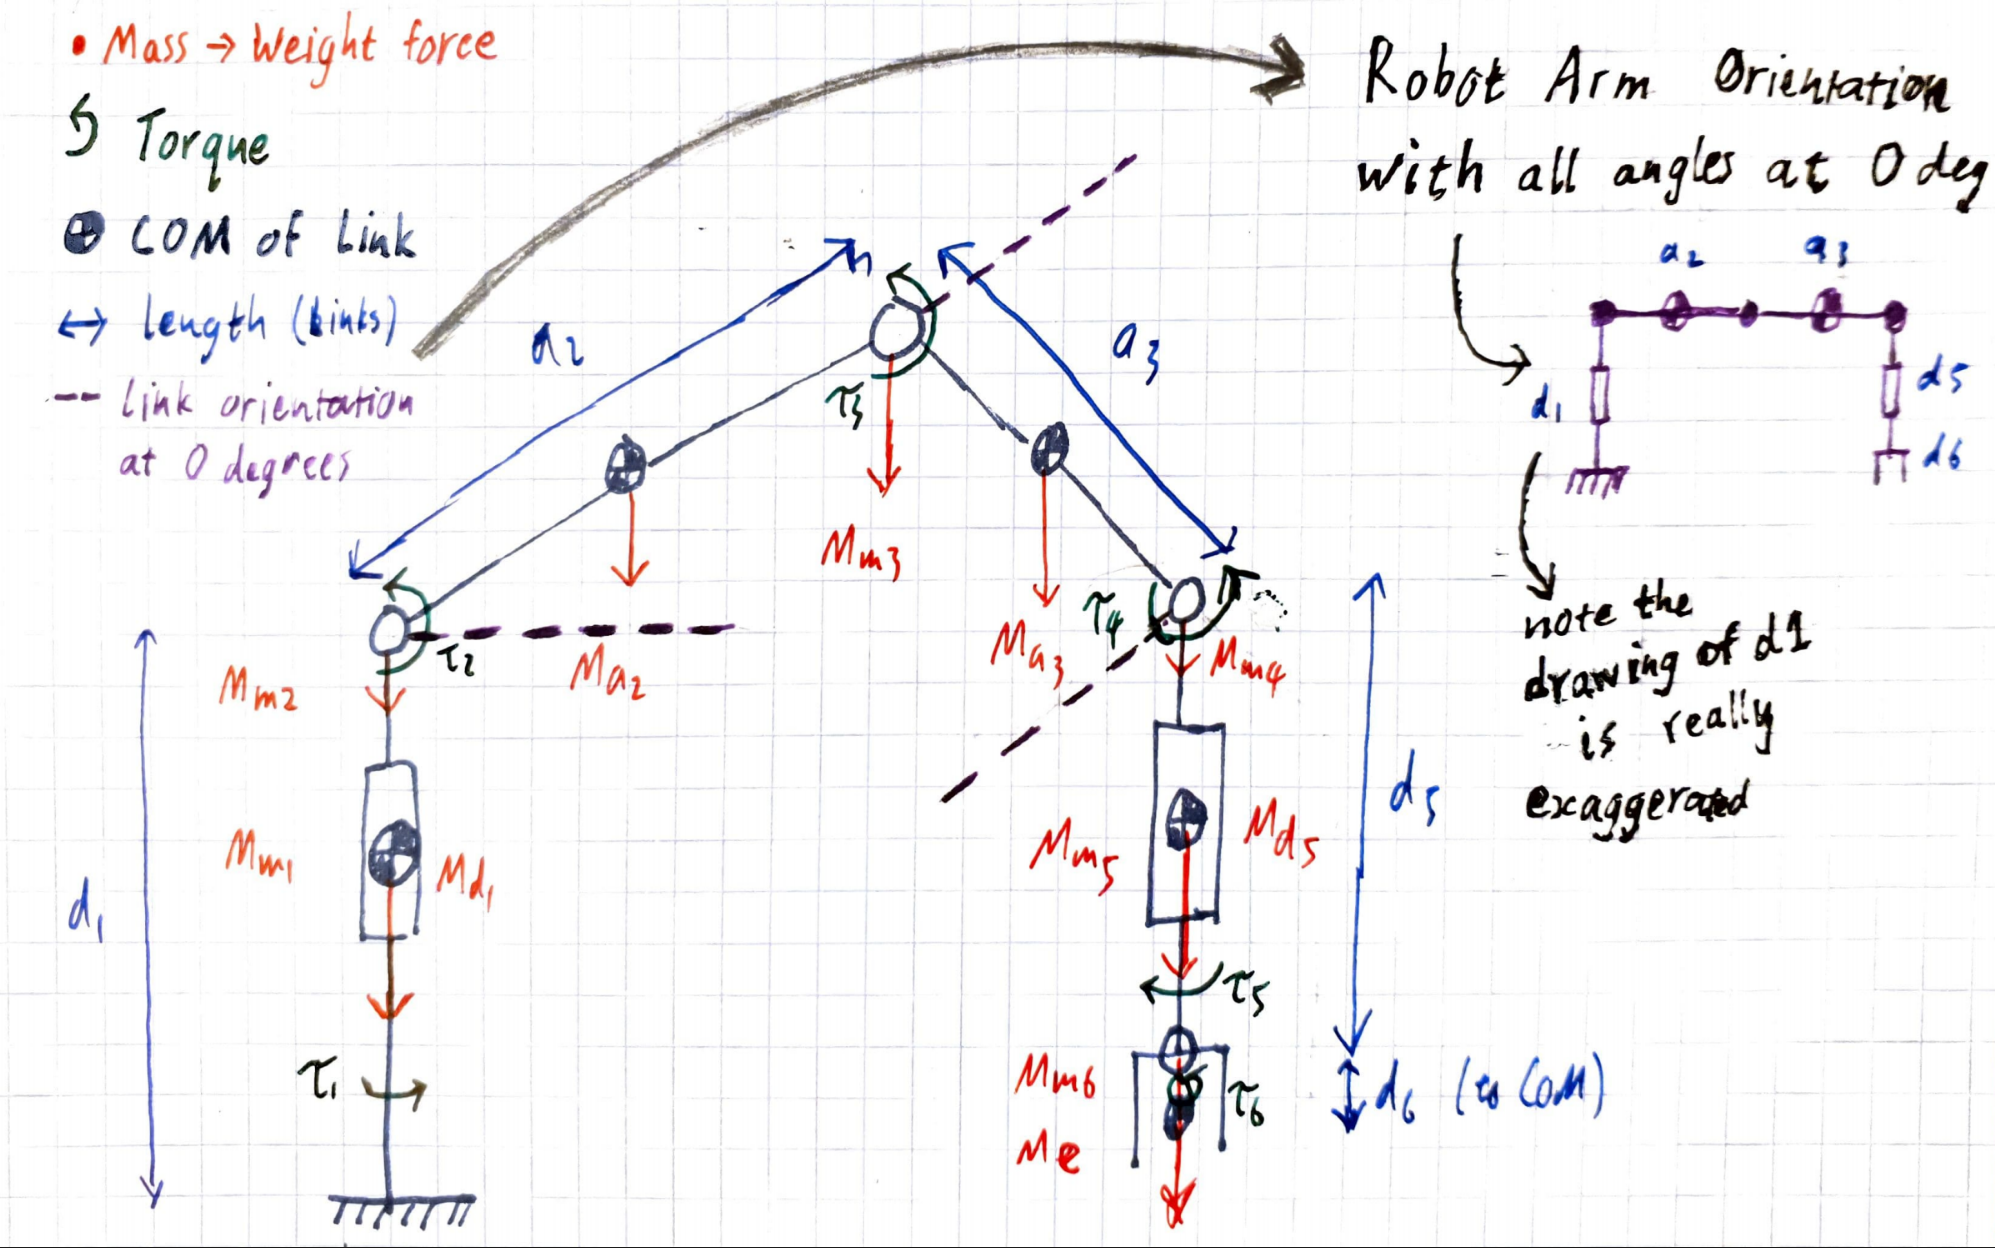 • Mass → Weight force
Torque
COM of Link
↔ length (Links)
-- link orientation
at 0 degrees
Robot Arm Orientation
with all angles at 0 deg
a2
a3
d1
d5
d6
note the
drawing of d1
is really
exaggerated
a2
a3
τ3
Mm3
τ2
Mm2
Ma2
Ma3
τ4
Mm4
d1
Mm1
Md1
τ1
Mm5
Md5
d5
τ5
Mm6
τ6
d6 (to COM)
Me